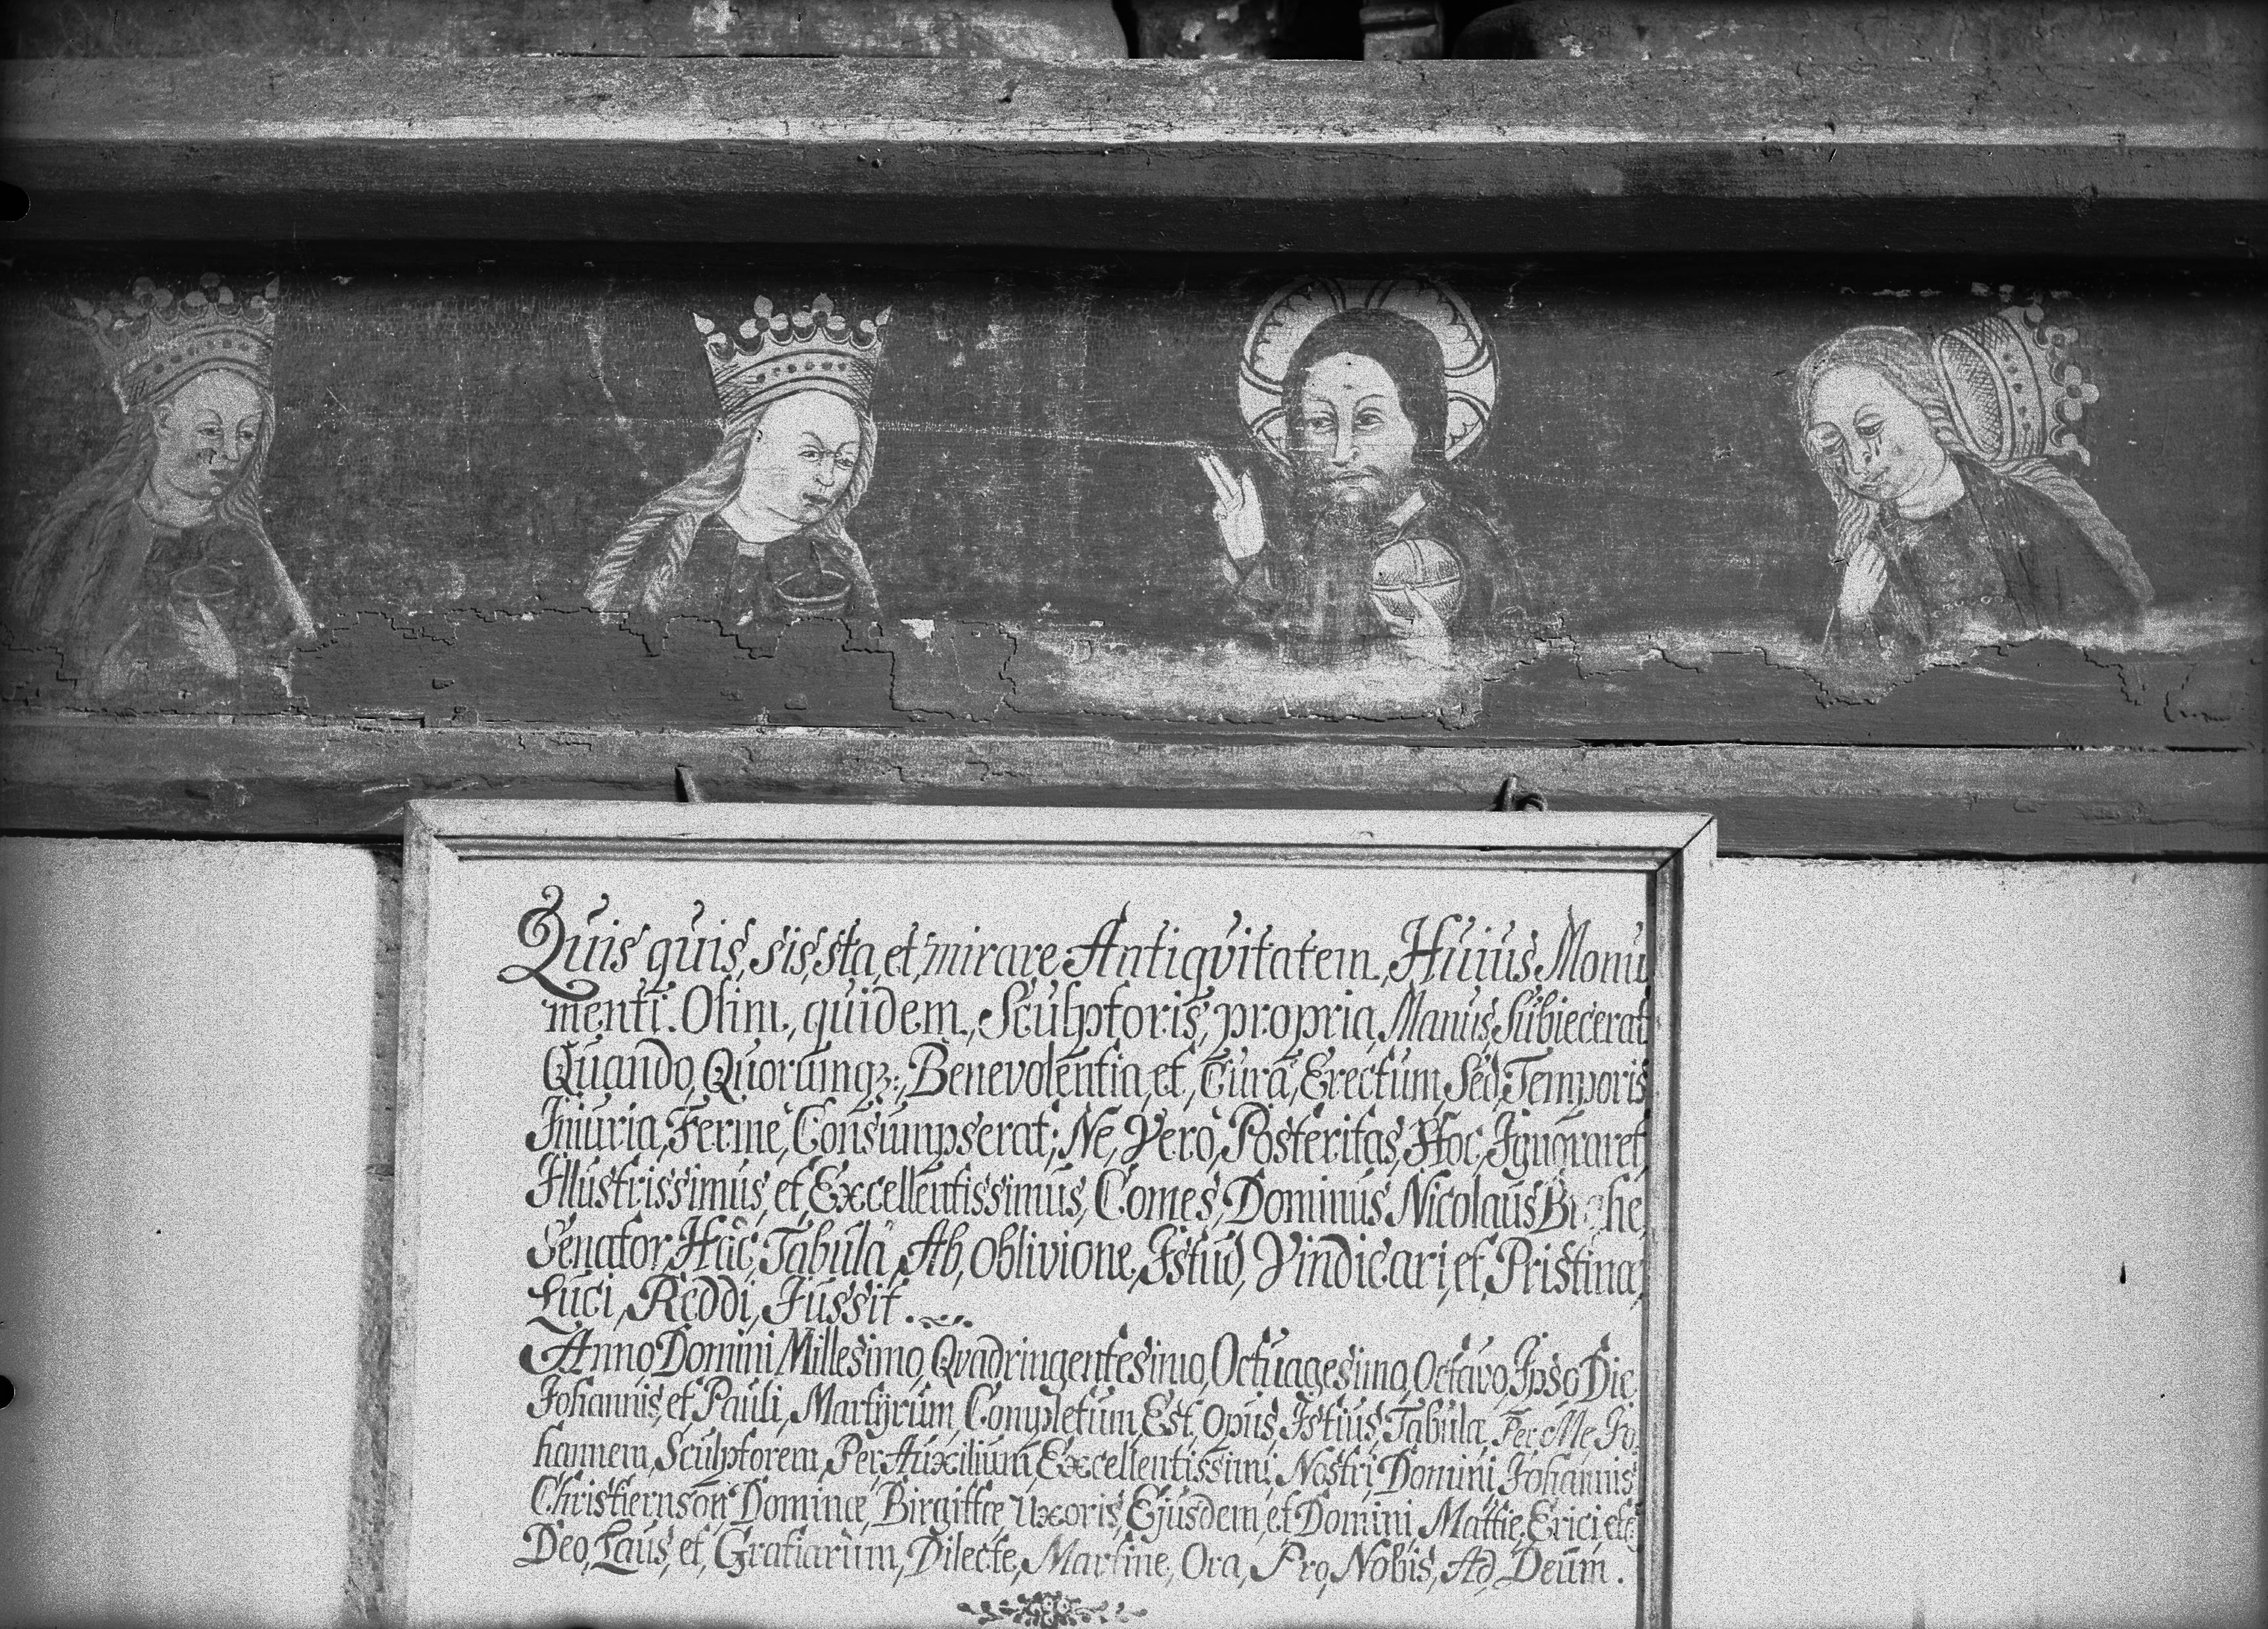 Quis quis, sis, sta, et, mirare Antiqvitatem, Huius Monu
menti. Olim, quidem, Sculptoris, propria, Manus, Subiecerat
Quando, Quorumqz:, Benevolentia, et, Cura, Erectum, Sed, Temporis
Injuria, Ferme, Consumpserat; Ne, Vero, Posteritas, Hoc, Ignoraret,
Illustrissimus, et, Excellentissimus, Comes, Dominus Nicolaus
Senator, Hac, Tabula, Ab, oblivione, Istud, Vindicari, et, Pristinæ,
Luci, Reddi, Jussit.
Anno Domini Millesimo, Qvadringentesimo, Octuagesimo, Octavo, Ipso Die
Johannis, et Pauli, Martyrum, Completum, Est, Opus, Istius, Tabulæ, Per, Me, Jo
hannem, Sculptorem, Per, Auxilium, Excellentissimi, Nostri, Domini, Johannis
Christiernson, Dominæ, Birgittæ, Uxoris, Ejusdem, et Domini, Mattie, Erici, etc
Deo, Laus, et, Gratiarum, Dilecte, Martine, Ora, Pro, Nobis, Ad, Deum.